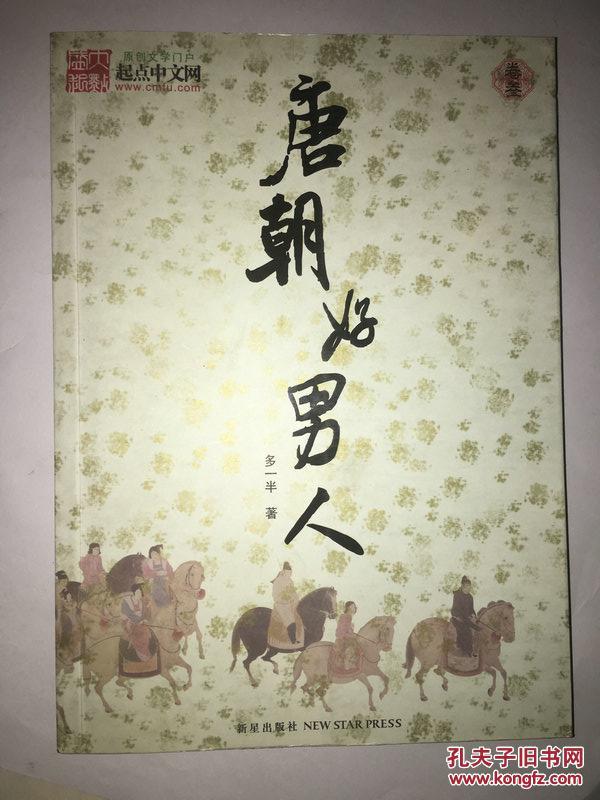 原创文学门户
起点中文网
www.cmfu.com
卷叁
唐朝好男人
多一半 著
新星出版社 NEW STAR PRESS
孔夫子旧书网
www.kongfz.com